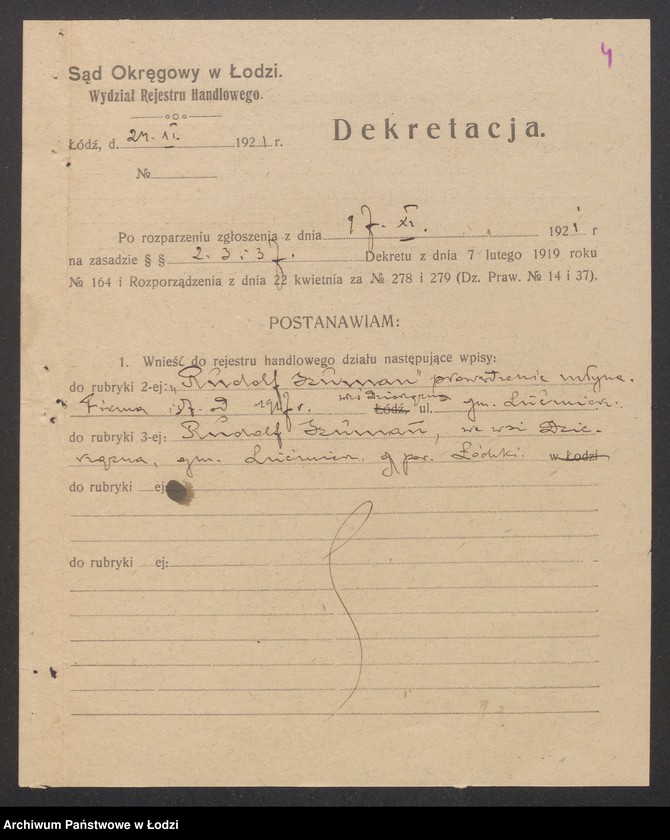 4
Sąd Okręgowy w Łodzi.
Wydział Rejestru Handlowego.
Dekretacja.
Łódź, d. 24. XI. 1921 r.
№
Po rozparzeniu zgłoszenia z dnia 17. XI. 1921 r
na zasadzie § § 2. 3 i 37. Dekretu z dnia 7 lutego 1919 roku
№ 164 i Rozporządzenia z dnia 22 kwietnia za № 278 i 279 (Dz. Praw. № 14 i 37).
POSTANAWIAM:
1. Wnieść do rejestru handlowego działu następujące wpisy:
do rubryki 2-ej: „Rudolf Szuman" prowadzenie młyna.
Firma istn. od 1917 r. wieś Dzierżązna Łódź, ul. gm. Lućmierz.
do rubryki 3-ej: Rudolf Szuman, we wsi Dzier-
żązna, gm. Lućmierz. pow. Łódzki. w Łodzi
do rubryki ej:
do rubryki ej:
Archiwum Państwowe w Łodzi